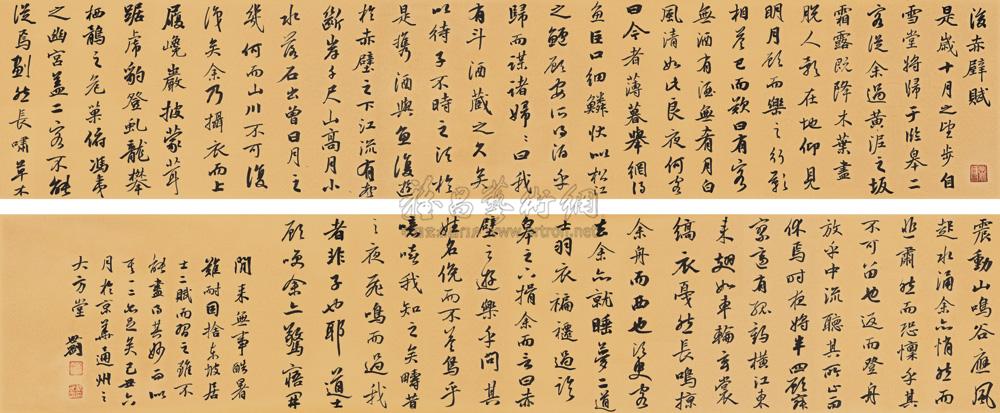 後赤壁賦
是歲十月之望步自
雪堂將歸于臨皋二
客從余過黃泥之坂
霜露既降木葉盡
脫人影在地仰見
明月顧而樂之行歌
相答已而歎曰有客
無酒有酒無肴月白
風清如此良夜何客
曰今者薄暮舉網得
魚巨口細鱗狀似松江
之鱸顧安所得酒乎
歸而謀諸婦婦曰我
有斗酒藏之久矣
以待子不時之須於
是攜酒與魚復遊
於赤壁之下江流有聲
斷岸千尺山高月小
水落石出曾日月之
幾何而山川不可復
識矣余乃攝衣而上
履巉巖披蒙茸
踞虎豹登虬龍攀
栖鶻之危巢俯馮夷
之幽宮蓋二客不能
從焉劃然長嘯草木
震動山鳴谷應風
起水涌余亦悄然而
悲肅然而恐懍乎其
不可留也返而登舟
放乎中流聽其所止而
休焉時夜將半四顧寂
寥適有孤鶴橫江東
來翅如車輪玄裳
縞衣戛然長鳴掠
余舟而西也須臾客
去余亦就睡夢二道
士羽衣蹁躚過臨
皋之下揖余而言曰赤
壁之遊樂乎問其
姓名俛而不答嗚乎
噫嘻我知之矣疇昔
之夜飛鳴而過我
者非子也耶 道士
顧笑余亦驚寤開
閒來無事酷暑
難耐固捨東坡居
士二賦而習之雖不
能盡得其妙而以
一二也足矣己丑六
月於京華通州之
大方堂 劉
雅昌藝術網